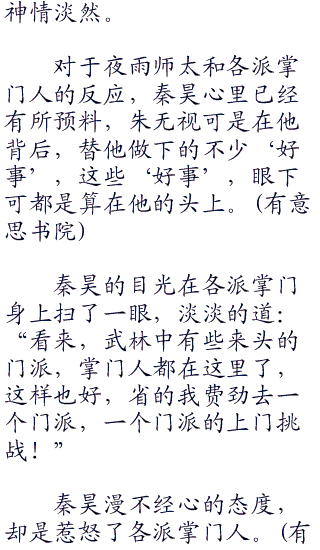 神情淡然。
对于夜雨师太和各派掌
门人的反应，秦昊心里已经
有所预料，朱无视可是在他
背后，替他做下的不少‘好
事’，这些‘好事’，眼下
可都是算在他的头上。(有意
思书院)
秦昊的目光在各派掌门
身上扫了一眼，淡淡的道：
“看来，武林中有些来头的
门派，掌门人都在这里了，
这样也好，省的我费劲去一
个门派，一个门派的上门挑
战！”
秦昊漫不经心的态度，
却是惹怒了各派掌门人。(有